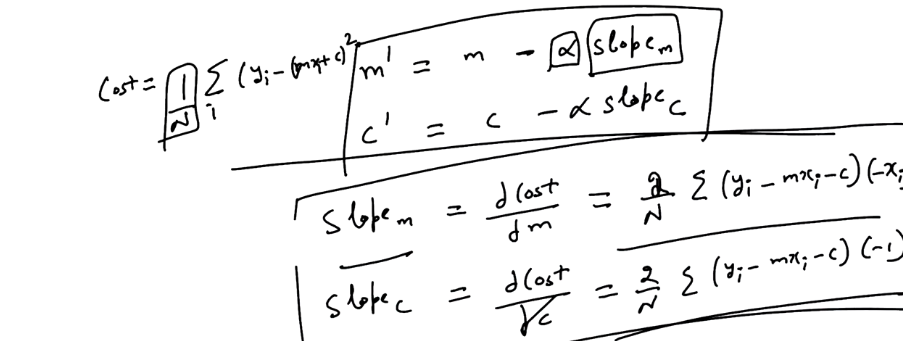 Cost = 1/N Σ_i (y_i - (mx_i + c))^2
m' = m - α slope_m
c' = c - α slope_c
slope_m = dCost/dm = 2/N Σ (y_i - mx_i - c) (-x_i
slope_c = dCost/dc = 2/N Σ (y_i - mx_i - c) (-1)